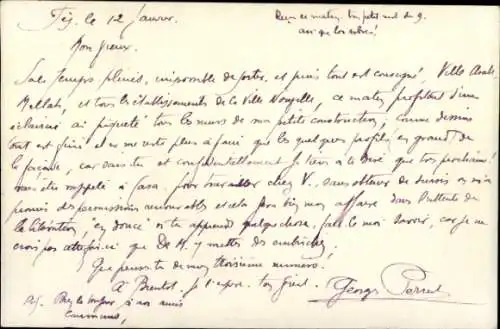 Fès. le 12 Janvier.
Reçu ce matin, ton petit mot du 9.
ainsi que les autres!
Mon vieux.
Sale temps pluies, impossible de sortir, et puis tout est consigné, Ville Arabe,
Mellah, et tous les établissements de la Ville Nouvelle, ce matin profitant d'une
éclaircie ai tous les murs de ma petite construction, comme dessins
tout est fini et ne reste plus à faire que les quelques profils en grandeur de
la façade, car sans et confidentiellement je tiens à te dire que très prochainement
vais être rappelé à Casa, pour travailler chez V., sans obtenir de sursis on m'a
promis des permissions renouvelables et cela fera bien mon affaire dans l'attente de
la libération, "en douce" si tu apprends quelque chose, fais le moi savoir, car je ne
crois pas que De M. y mette des
Que penses-tu de mon troisième numéro.
A Bientôt, je l'espère. ton Georges Perret
P.S. Bien le bonjour à nos amis
communs,